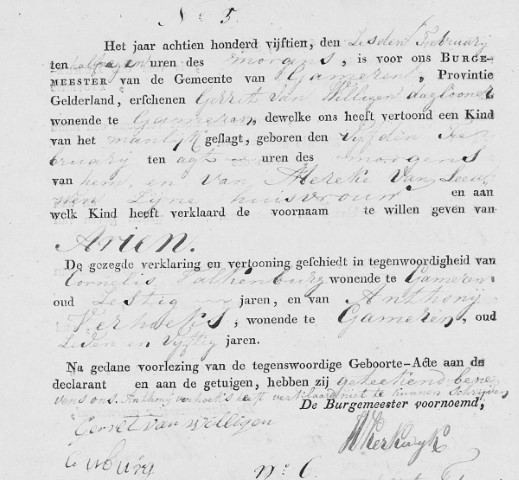 N.º 5.
Het jaar achtien honderd vijftien, den Zesden February
ten half negen uren des morgens, is voor ons BURGE-
MEESTER van de Gemeente van Gameren, Provintie
Gelderland, erschenen Gerrit van Willigen daglooner
wonende te Gameren, dewelke ons heeft vertoond een Kind
van het manlijk geslagt, geboren den Vijfden Fe
bruarij ten agt uren des morgens
van hem en van Mereke van
Zijne huisvrouw en aan
welk Kind heeft verklaard de voornaam te willen geven van
Arien.
De gezegde verklaring en vertooning geschiedt in tegenwoordigheid van
Cornelis Valkenburg wonende te Gameren
oud Zestig jaren, en van Anthonij
Verhoeks, wonende te Gameren, oud
Zeven en Vijftig jaren.
Na gedane voorlezing van de tegenswoordige Geboorte-Acte aan de
declarant en aan de getuigen, hebben zij geteekend bene
vens ons. Anthonij verhoek's heeft verklaard niet te kunnen Schrijven
De Burgemeester voornoemd,
Gerret van Willigen
N.º 6.